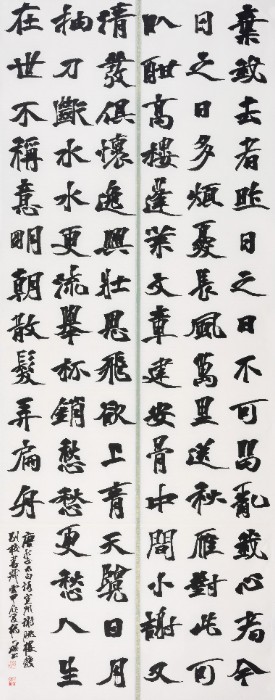 棄我去者昨日之日不可留亂我心者今
日之日多煩憂長風萬里送秋雁對此可
以酣高樓蓬萊文章建安骨中間小謝又
清發俱懷逸興壯思飛欲上青天覽日月
抽刀斷水水更流舉杯銷愁愁更愁人生
在世不稱意明朝散髮弄扁舟
太白詩宣州謝朓樓餞
別校書叔雲